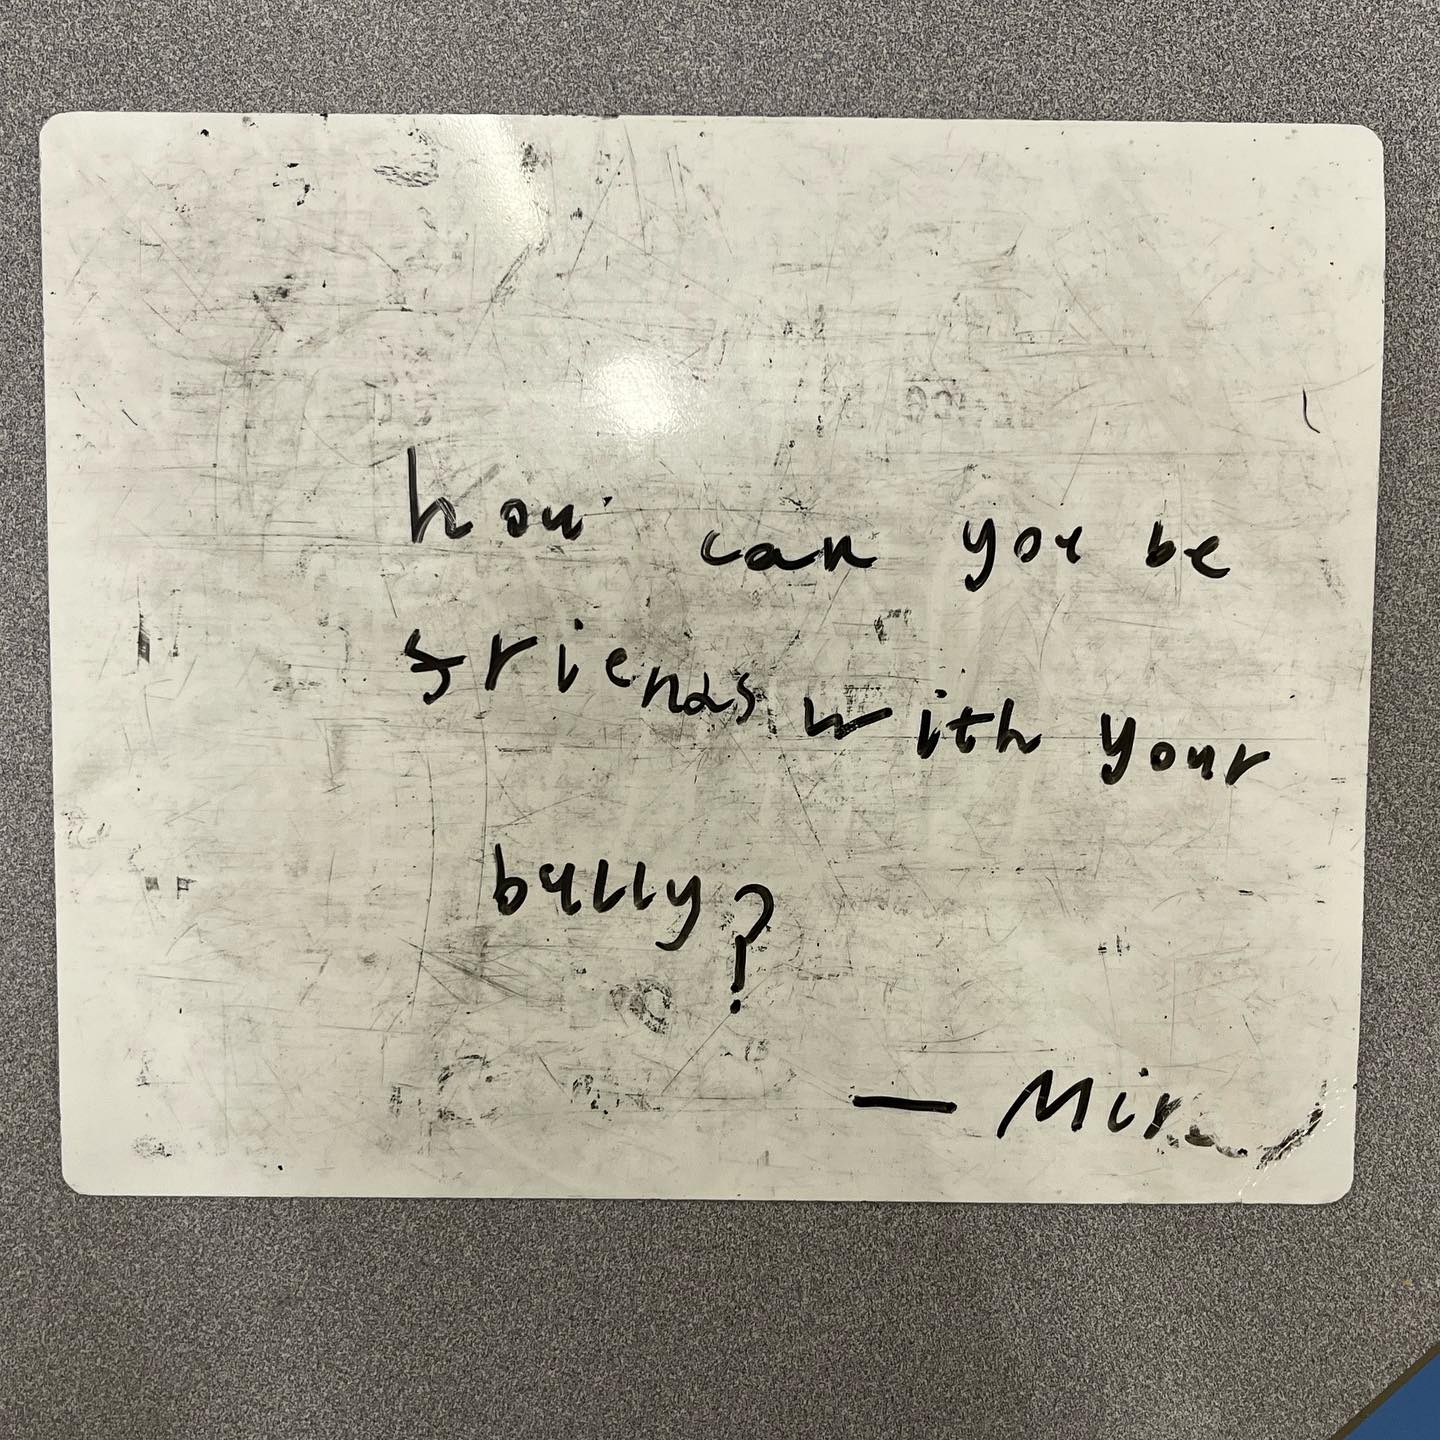 how can you be
friends with your
bully?